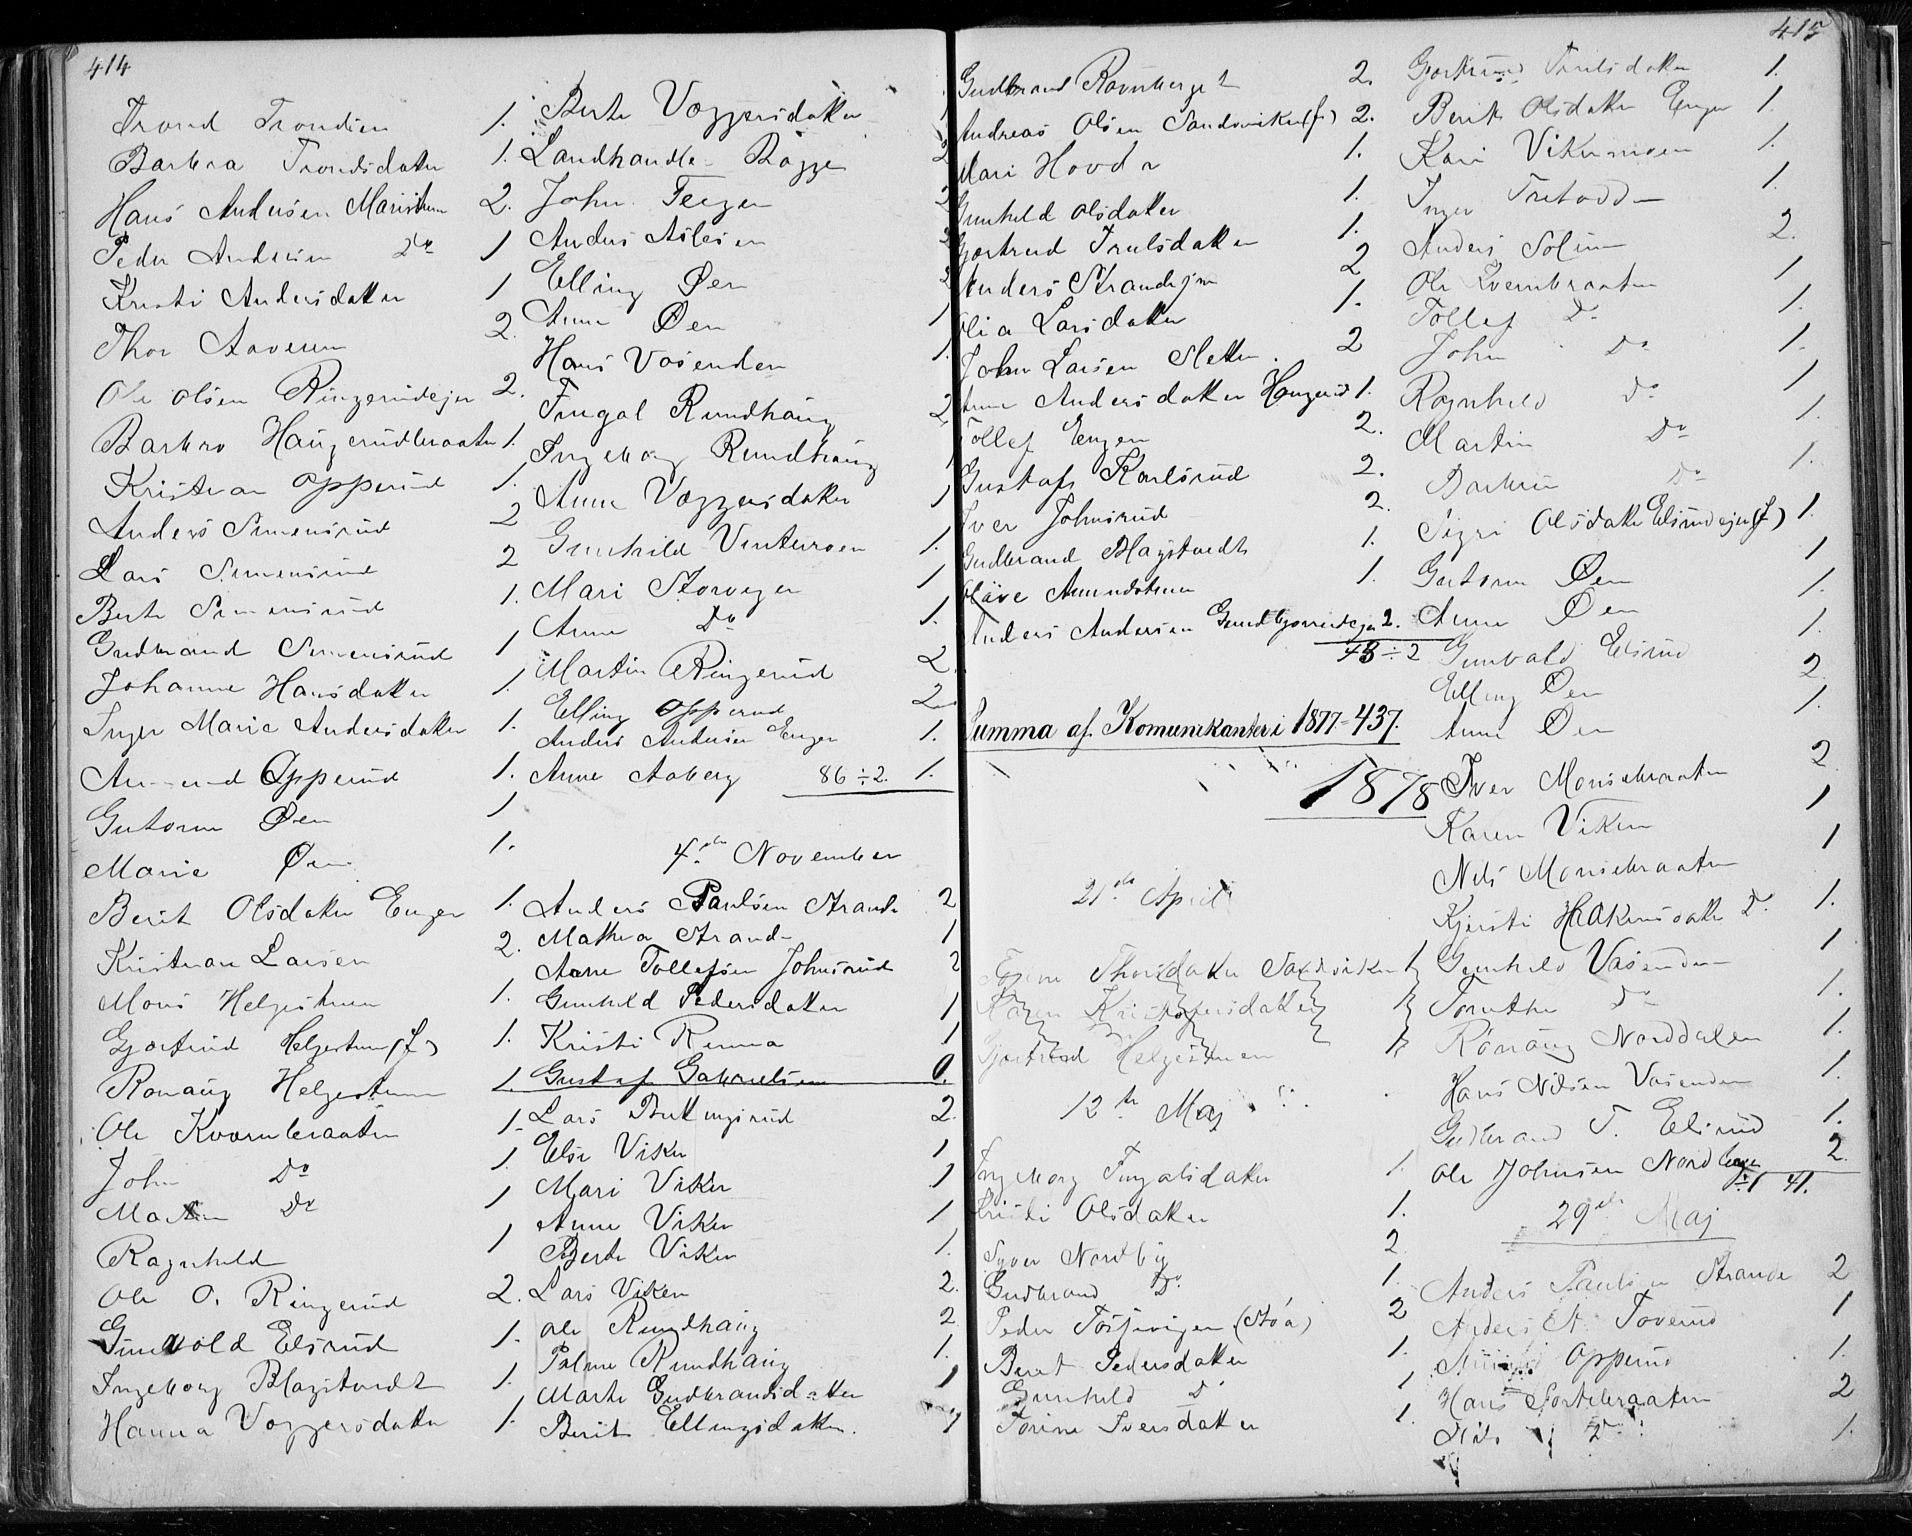 414
Trond Trondsen 1.
Barbra Trondsdatter 1.
Hans Andersen Maristuen 2.
Peder Andersen Do 1
Kristi Andersdatter 1
Thor Aaveren 2.
Ole Olsen Ringerudejer 2.
Barbro Haugerudbraaten 1.
Kristian Opperud 1.
Anders Simensrud 2
Lars Simensrud 2
Berte Simensrud 1.
Gudbrand Simensrud 1
Johanne Hansdatter 1.
Inger Marie Andersdatter 1.
Amund Opperud 1.
Guttorm Øen 1
Marie Øen 1.
Berit Olsdatter Enger 1.
Kristian Larsen 2.
Mons Helgestuen 1.
Gjertrud Helgestuen (f) 1.
Ronaug Helgestuen 1.
Ole Kvernbraaten 1.
John Do 1
Martin Do 1
Ragnhild 1
Ole O. Ringerud 2.
Gunvold Elsrud 1.
Ingeborg Blagstvedt 1.
Hanna Voggersdatter 1.
Berte Voggersdatter
Landhandler Bagge
John Teigen
Anders Aslesen
Elling Øen
Anne Øen
Hans Vasenden
Fingal Rundhaug 2
Ingeborg Rundhaug
Anne Voggersdatter 1
Gunhild Vinturoen 1.
Mari Storveger 1
Anne Do 1.
Martin Ringerud 2.
Elling Opperud 2.
Anders Andersen Enger 1.
Anne Aaberg 86÷2. 1.
4de November
Anders Paulsen Strande 2
Mathea Strand 1
Arne Tollefsen Johnsrud 2
Gunhild Pedersdatter 1
Kristi Renna 1
Gustaf Gabrielsen 0.
Lars Buttingsrud 2.
Else Viker 1
Mari Viker 1
Anne Viker 1
Berte Viker 1.
Lars Viken 2.
Ole Rundhaug 2
Palme Rundhaug 1.
Marte Gudbrandsdatter 1
Berit Ellingsdatter. 1
415
Gudbrand Ravnberget 2.
Andreas Olsen Sandsviken (f.) 2.
Mari Hovda 1.
Gunhild Olsdatter 1.
Gjertrud Trulsdatter 1.
Anders Strandejer 2
Olia Larsdatter 1.
John Larsen Sletten. 2
Anne Andersdatter Haugerud 1.
Tollef Engen 2.
Gustaf Karlsrud 2.
Iver Johnsrud 2.
Gudbrand Blagstvedt 1.
Olave Amundstuen 1.
Anders Andersen 2.
43÷2
Summa af Komunikanter i 1877=437.
1878
21de April
Torine Thorsdatter Sandviken 1
Karen Kristofersdatter 1
Gjertrud Helgestuen 1
12te Maj
Ingeborg Fingalsdatter 1.
Kristi Olsdatter 1.
Syver Nordby 2
Gudbrand Do 1.
Peder Tossevigen (Aaa) 2
Berit Pedersdatter 1.
Gunhild Do 1
Torine Iversdatter 1.
Gjertrud Trulsdatter 1.
Berit Olsdatter Enger 1.
Kari Vikermoen 1.
Inger Tretodden 1.
Anders Solum 2.
Ole Kvernbraaten 1
Tollef Do 1.
John Do 1.
Ragnhild Do 1
Martin Do 1.
Barbru Do 1.
Sigri Olsdatter Elsrudejer (f) 1.
Guttorm Øen 1
Anne Øen 1.
Gunvald Elsrud 1.
Elling Øen 2
Anne Øen 1.
Iver Monsebraaten 2
Karen Viken 1
Nils Monsebraaten 1
Kjersti Haakensdatter Do 1.
Gunhild Vasenden 1
Torethe Do 1.
Rønaug Norddalen 1.
Hans Nilsen Vasenden 1.
Gudbrand T. Elsrud 1.
Ole Johnsen Nordbyejer 2.
÷1 41.
29de Maj
Anders Paulsen Strande 2
Anders A. Toverud 1
Opperud 1.
Hans Sortebraaten 2
Nils Do 1.